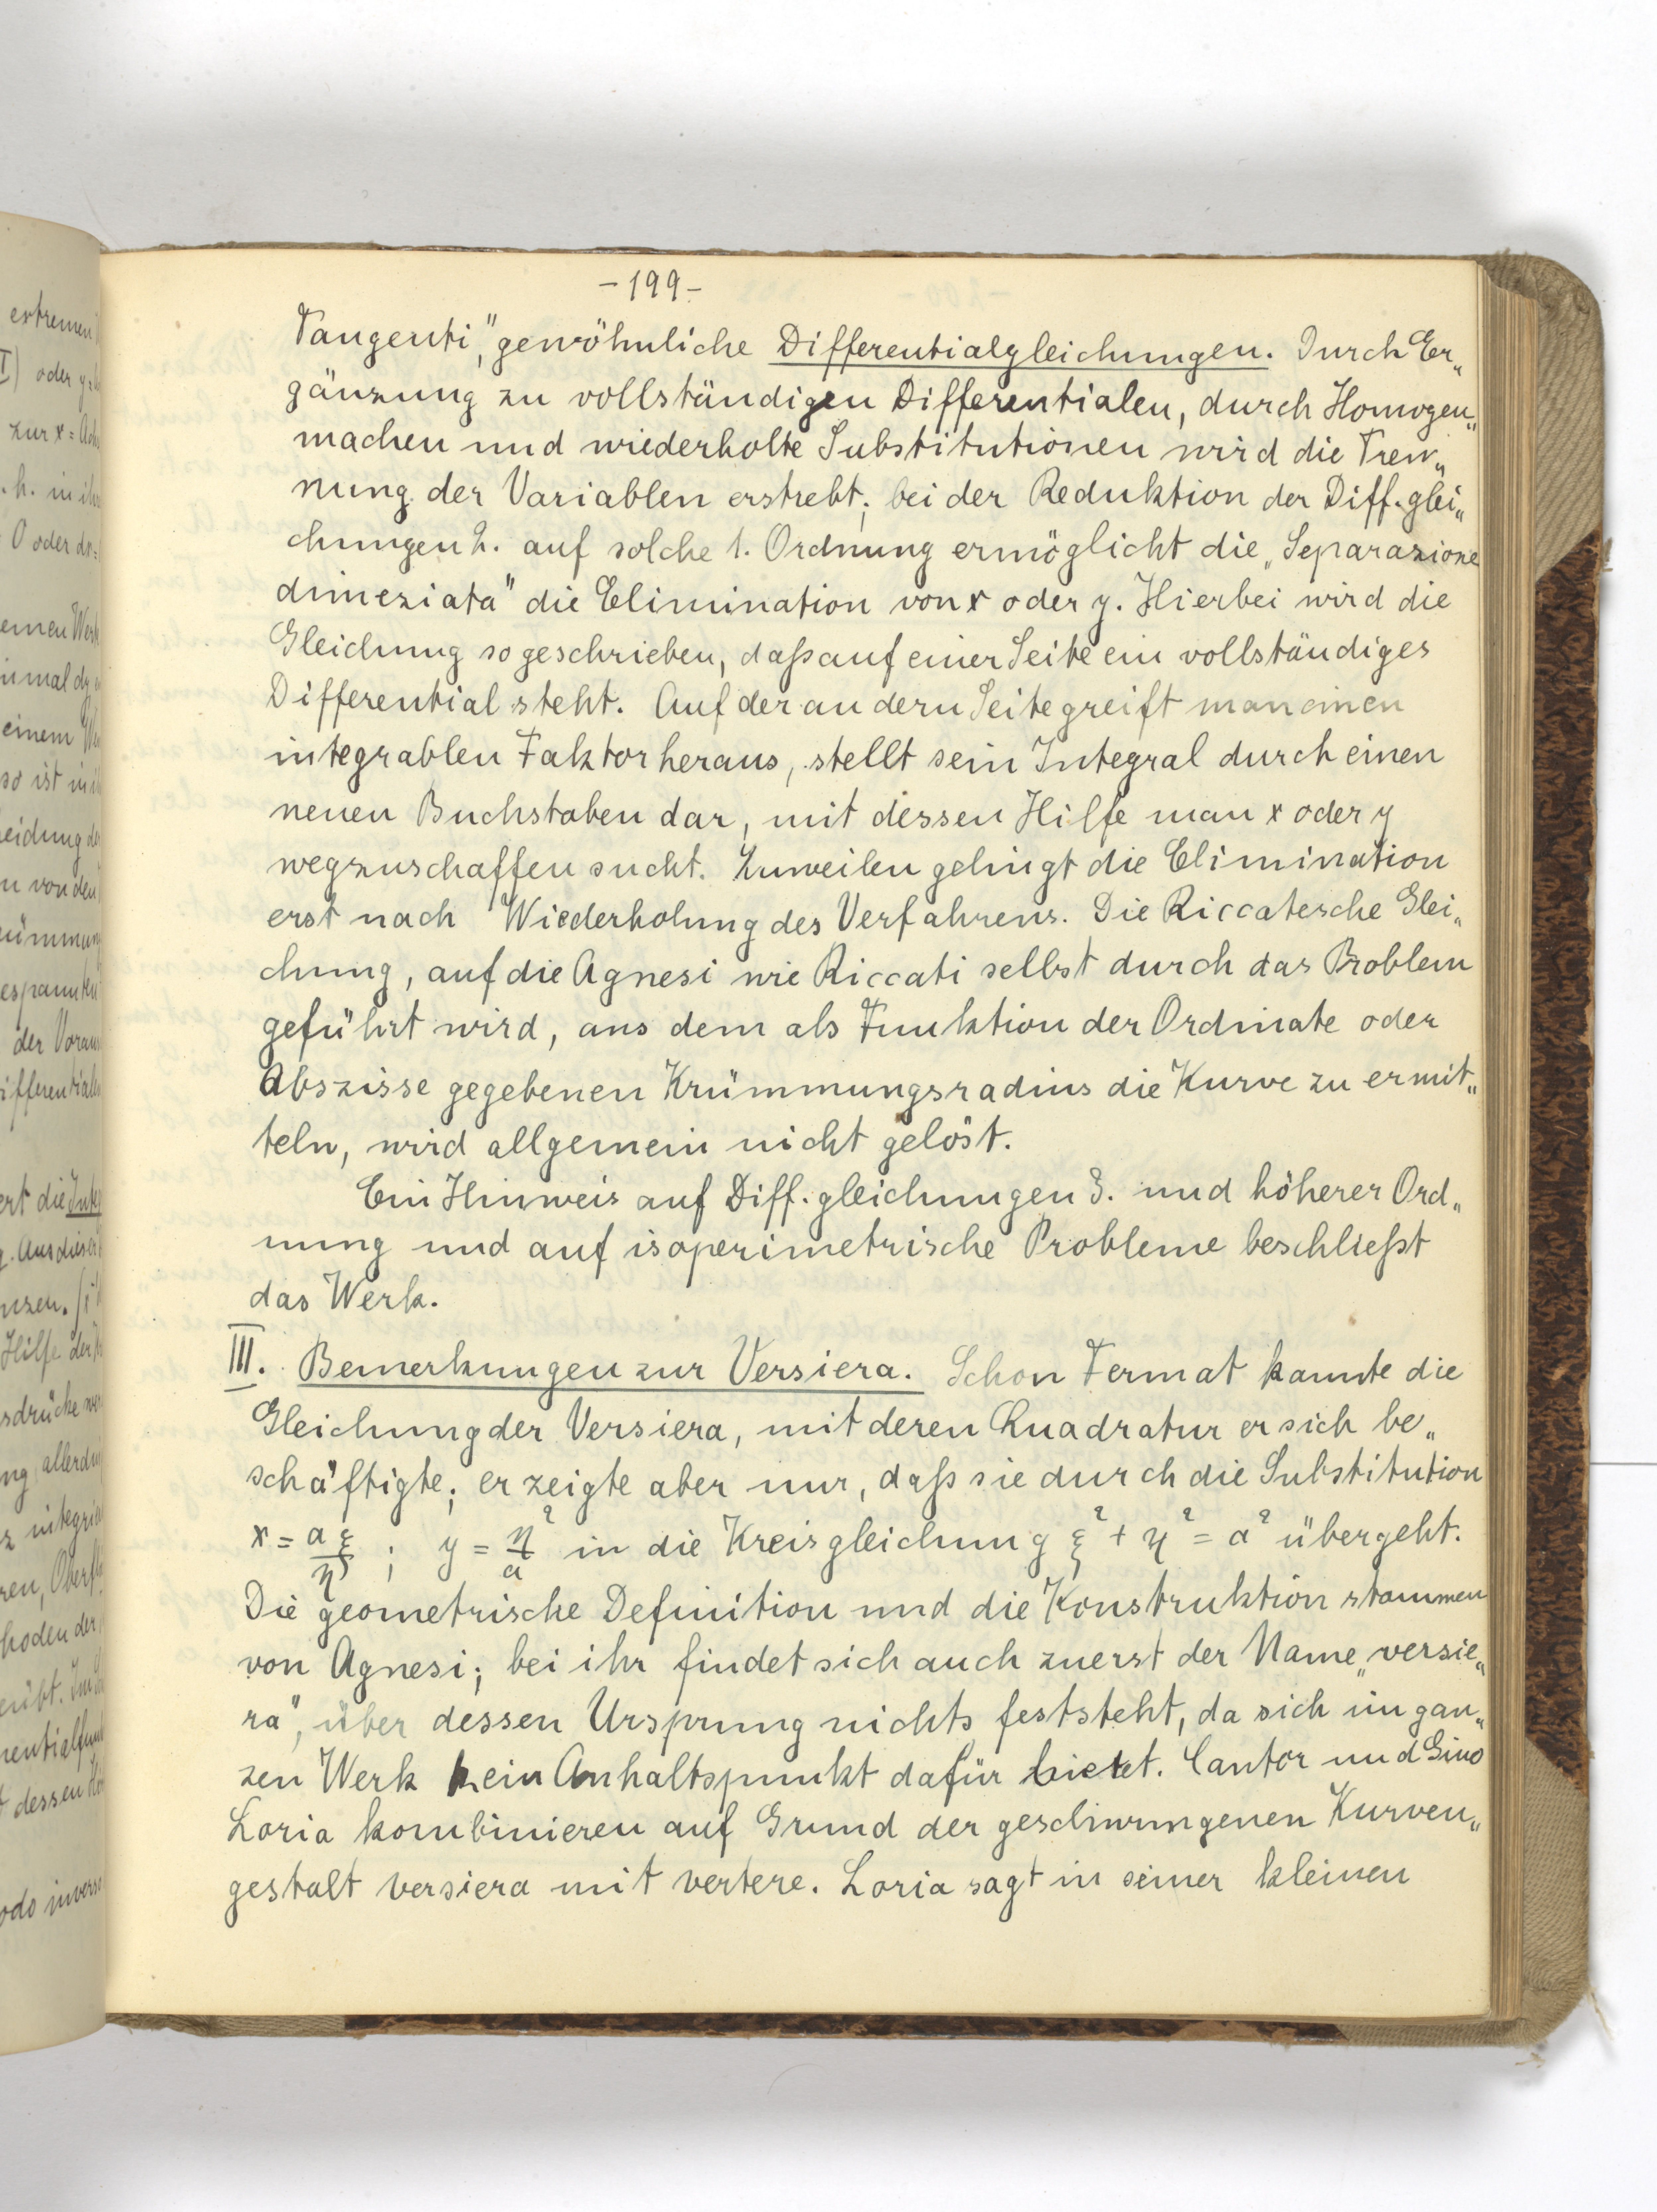 -199-
Tangenti," gewöhnliche Differentialgleichungen. Durch Er„
gänzung zu vollständigen Differentialen, durch Homogen„
machen und wiederholte Substitutionen wird die Tren„
nung der Variablen erstrebt; bei der Reduktion der Diff.glei„
chungen 2. auf solche 1. Ordnung ermöglicht die „Separazione
dimeziata" die Elimination von x oder y. Hierbei wird die
Gleichung so geschrieben, daß auf einer Seite ein vollständiges
Differential steht. Auf der andern Seite greift man einen
integrablen Faktor heraus, stellt sein Integral durch einen
neuen Buchstaben dar, mit dessen Hilfe man x oder y
wegzuschaffen sucht. Zuweilen gelingt die Elimination
erst nach Wiederholung des Verfahrens. Die Riccatesche Glei„
chung, auf die Agnesi wie Riccati selbst durch das Problem
geführt wird, aus dem als Funktion der Ordinate oder
Abszisse gegebenen Krümmungsradius die Kurve zu ermit„
teln, wird allgemein nicht gelöst.
Ein Hinweis auf Diff.gleichungen 3. und höherer Ord„
nung und auf isoperimetrische Probleme beschließt
das Werk.
III. Bemerkungen zur Versiera. Schon Fermat kannte die
Gleichung der Versiera, mit deren Quadratur er sich be„
schäftigte; er zeigte aber nur, daß sie durch die Substitution
x = aξ/η ; y = η²/a in die Kreisgleichung ξ² + η² = a² übergeht.
Die geometrische Definition und die Konstruktion stammen
von Agnesi; bei ihr findet sich auch zuerst der Name „versie„
ra", über dessen Ursprung nichts feststeht, da sich im gan„
zen Werk kein Anhaltspunkt dafür bietet. Cantor und Gino
Loria kombinieren auf Grund der geschwungenen Kurven„
gestalt versiera mit vertere. Loria sagt in seiner kleinen